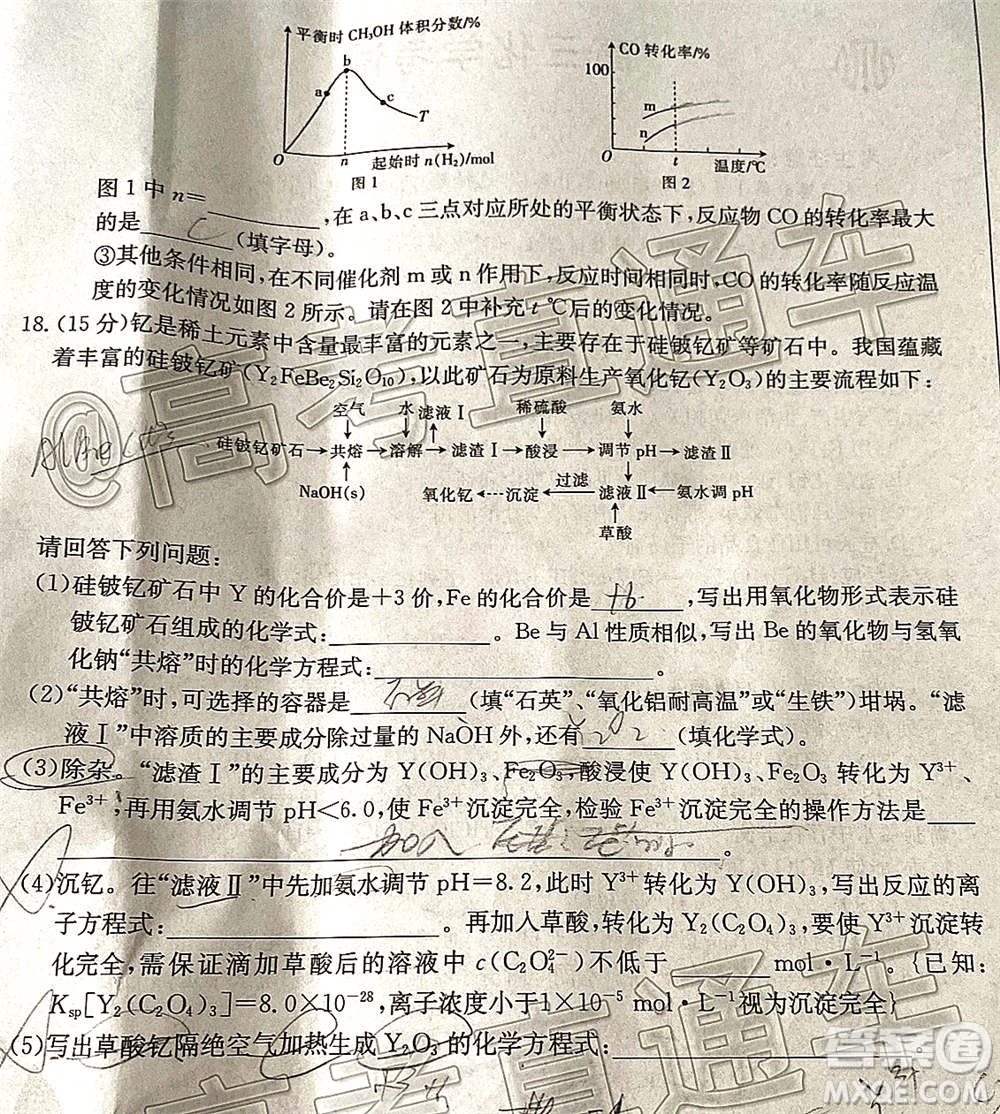 平衡时 CH₃OH 体积分数/%
b
a
c
T
O
n
起始时 n(H₂)/mol
图 1
CO 转化率/%
100
m
n
O
t
温度/℃
图 2
图 1 中 n=________,在 a、b、c 三点对应所处的平衡状态下,反应物 CO 的转化率最大
的是 c (填字母)。
③其他条件相同,在不同催化剂 m 或 n 作用下,反应时间相同时,CO 的转化率随反应温
度的变化情况如图 2 所示。请在图 2 中补充 t ℃后的变化情况。
18.(15 分)钇是稀土元素中含量最丰富的元素之一,主要存在于硅铍钇矿等矿石中。我国蕴藏
着丰富的硅铍钇矿(Y₂FeBe₂Si₂O₁₀),以此矿石为原料生产氧化钇(Y₂O₃)的主要流程如下:
空气 水 滤液Ⅰ 稀硫酸 氨水
硅铍钇矿石→共熔→溶解→滤渣Ⅰ→酸浸→调节 pH→滤渣Ⅱ
NaOH(s) 氧化钇←沉淀←过滤 滤液Ⅱ←氨水调 pH
草酸
请回答下列问题:
(1)硅铍钇矿石中 Y 的化合价是+3 价,Fe 的化合价是________,写出用氧化物形式表示硅
铍钇矿石组成的化学式:________。Be 与 Al 性质相似,写出 Be 的氧化物与氢氧
化钠“共熔”时的化学方程式:________。
(2)“共熔”时,可选择的容器是 石英 (填“石英”、“氧化铝耐高温”或“生铁”)坩埚。“滤
液Ⅰ”中溶质的主要成分除过量的 NaOH 外,还有________(填化学式)。
(3)除杂。“滤渣Ⅰ”的主要成分为 Y(OH)₃、Fe₂O₃,酸浸使 Y(OH)₃、Fe₂O₃ 转化为 Y³⁺、
Fe³⁺;再用氨水调节 pH<6.0,使 Fe³⁺沉淀完全,检验 Fe³⁺沉淀完全的操作方法是____
________。
(4)沉钇。往“滤液Ⅱ”中先加氨水调节 pH=8.2,此时 Y³⁺转化为 Y(OH)₃,写出反应的离
子方程式:________。再加入草酸,转化为 Y₂(C₂O₄)₃,要使 Y³⁺沉淀转
化完全,需保证滴加草酸后的溶液中 c(C₂O₄²⁻)不低于________mol·L⁻¹。{已知:
Ksp[Y₂(C₂O₄)₃]=8.0×10⁻²⁸,离子浓度小于1×10⁻⁵ mol·L⁻¹视为沉淀完全}
(5)写出草酸钇隔绝空气加热生成 Y₂O₃ 的化学方程式:________。
@高考直通车
高考直通车
答案圈
MXQE.COM